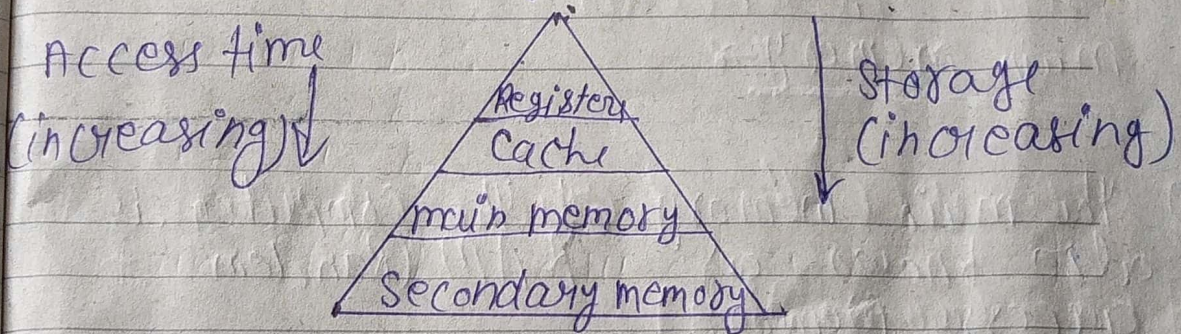 Access time
(increasing)
Registers
Cache
main memory
Secondary memory
Storage
(increasing)